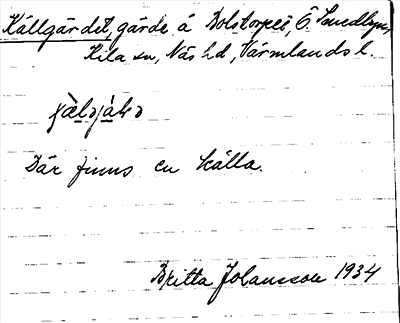 Källgärdet, gärde å Bolstorpet, Ö. Smedbyn,
Kila sn, Näs hd, Värmlands l.
Där finns en källa.
Britta Johansson 1934